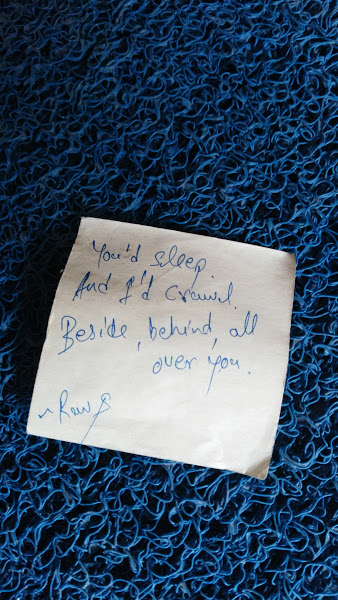 You'd sleep
And I'd crawl.
Beside, behind, all
over you.